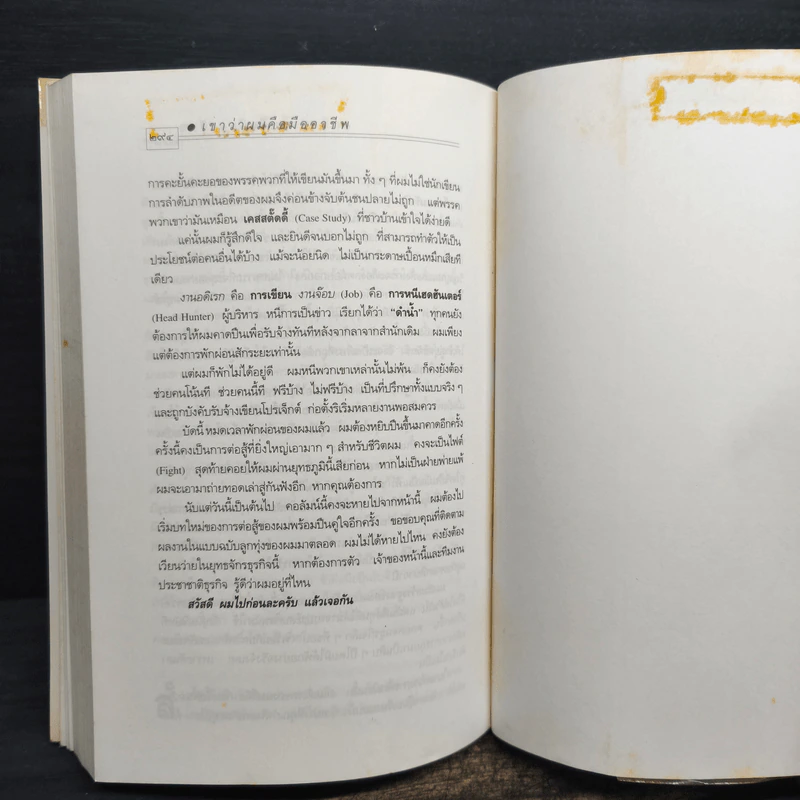 ๒๙๔
● เขาว่าผมคือมืออาชีพ
การคะยั้นคะยอของพรรคพวกที่ให้เขียนมันขึ้นมา ทั้ง ๆ ที่ผมไม่ใช่นักเขียน
การลำดับภาพในอดีตของผมจึงค่อนข้างจับต้นชนปลายไม่ถูก แต่พรรค
พวกเขาว่ามันเหมือน เคสสตั๊ดดี้ (Case Study) ที่ชาวบ้านเข้าใจได้ง่ายดี
แค่นั้นผมก็รู้สึกดีใจ และยินดีจนบอกไม่ถูก ที่สามารถทำตัวให้เป็น
ประโยชน์ต่อคนอื่นได้บ้าง แม้จะน้อยนิด ไม่เป็นกระดาษเปื้อนหมึกเสียที
เดียว
งานอดิเรก คือ การเขียน งานจ๊อบ (Job) คือ การหนีเฮดฮันเตอร์
(Head Hunter) ผู้บริหาร หนีการเป็นข่าว เรียกได้ว่า “ดำน้ำ” ทุกคนยัง
ต้องการให้ผมคาดปืนเพื่อรับจ้างทันทีหลังจากลาจากสำนักเดิม ผมเพียง
แต่ต้องการพักผ่อนสักระยะเท่านั้น
แต่ผมก็พักไม่ได้อยู่ดี ผมหนีพวกเขาเหล่านั้นไม่พ้น ก็คงยังต้อง
ช่วยคนโน้นที ช่วยคนนี้ที ฟรีบ้าง ไม่ฟรีบ้าง เป็นที่ปรึกษาทั้งแบบจริง ๆ
และถูกบังคับรับจ้างเขียนโปรเจ็กต์ ก่อตั้งริเริ่มหลายงานพอสมควร
บัดนี้หมดเวลาพักผ่อนของผมแล้ว ผมต้องหยิบปืนขึ้นมาคาดอีกครั้ง
ครั้งนี้คงเป็นการต่อสู้ที่ยิ่งใหญ่เอามาก ๆ สำหรับชีวิตผม คงจะเป็นไฟต์
(Fight) สุดท้ายคอยให้ผมผ่านยุทธภูมินี้เสียก่อน หากไม่เป็นฝ่ายพ่ายแพ้
ผมจะเอามาถ่ายทอดเล่าสู่กันฟังอีก หากคุณต้องการ
นับแต่วันนี้เป็นต้นไป คอลัมน์นี้คงจะหายไปจากหน้านี้ ผมต้องไป
เริ่มบทใหม่ของการต่อสู้ของผมพร้อมปืนคู่ใจอีกครั้ง ขอขอบคุณที่ติดตาม
ผลงานในแบบฉบับลูกทุ่งของผมมาตลอด ผมไม่ได้หายไปไหน คงยังต้อง
เวียนว่ายในยุทธจักรธุรกิจนี้ หากต้องการตัว เจ้าของหน้านี้และทีมงาน
ประชาชาติธุรกิจ รู้ดีว่าผมอยู่ที่ไหน
สวัสดี ผมไปก่อนละครับ แล้วเจอกัน